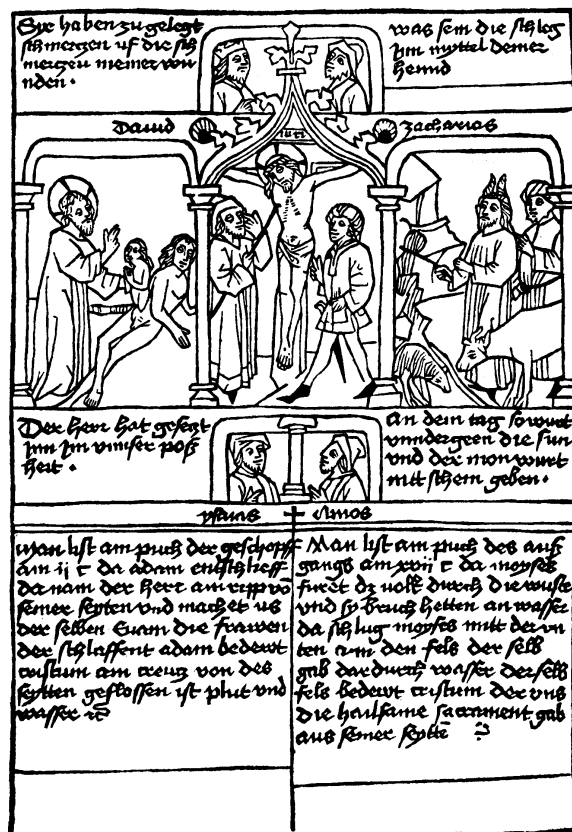 Sye haben zu gelegt
schmerzen uf die sch
merzen meiner wu
nden.
was sein die schleg
Jm myttel deiner
hennd
David
zacharias
inri
Der herr hat gesegt
Jnn Jm unnser poß
heit.
An dem tag so wurt
unndergeen die sun
und der mon wurt
nitt schein geben.
ysaias
Amos
Man list am puch der geschopff
am ij c da adam entschlieff
da nam der herr am ripp vō
seiner seyten und machet us
der selben Evam die frawen
der schlaffent adam bedewt
cristum am creutz von des
seytten geflossen ist plut und
wasser ꝛc
Man list am puch des auß
gangs am xvij c da moyses
furet dz volk durch die wuste
und sy bruch hetten an wasser
da schlug moyses mitt der ru
ten an den fels der selb
gab dardurch wasser der selb
fels bedewt cristum der uns
die hailsame sacrament gab
aus seiner seyttē